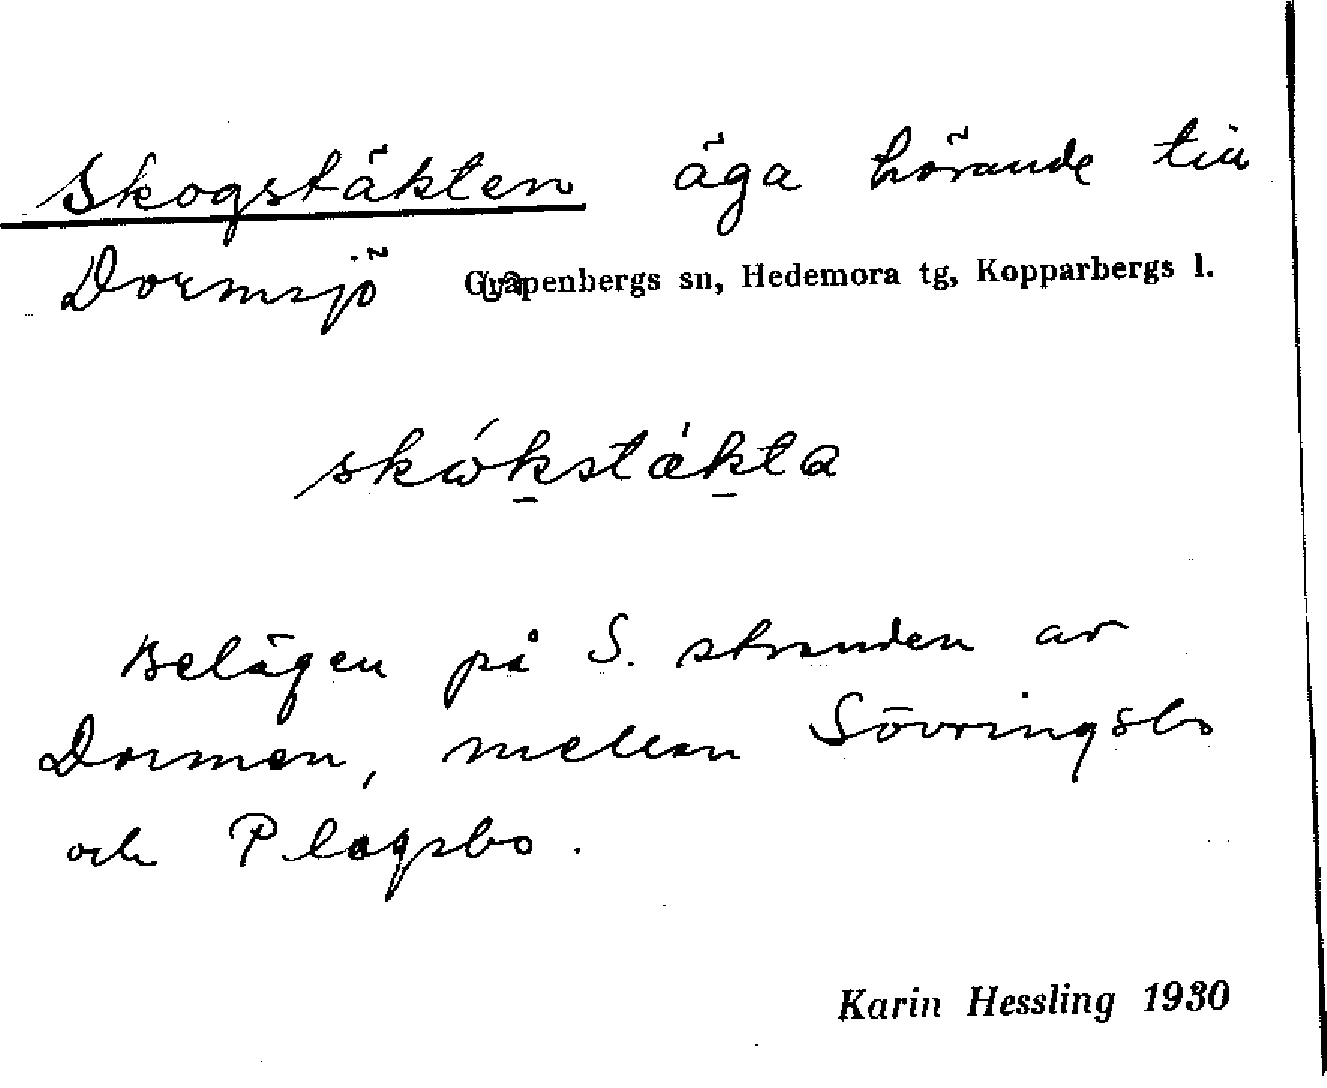 Skogstäkten äga hörande till
Dormsjö Garpenbergs sn, Hedemora tg, Kopparbergs l.
skώkstǽkta
Belägen på S. stranden av
Dormen, mellan Sövringsbo
och Plogsbo.
Karin Hessling 1930